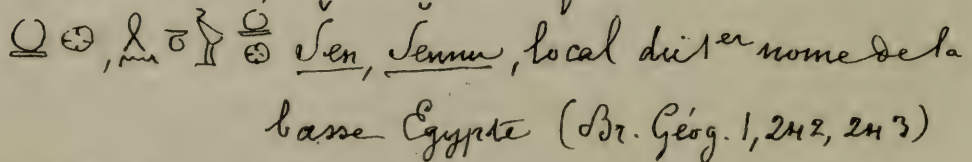 Šen, Šennu, local du 1er nome de la
basse Égypte (Br. Géog. 1, 242, 243)